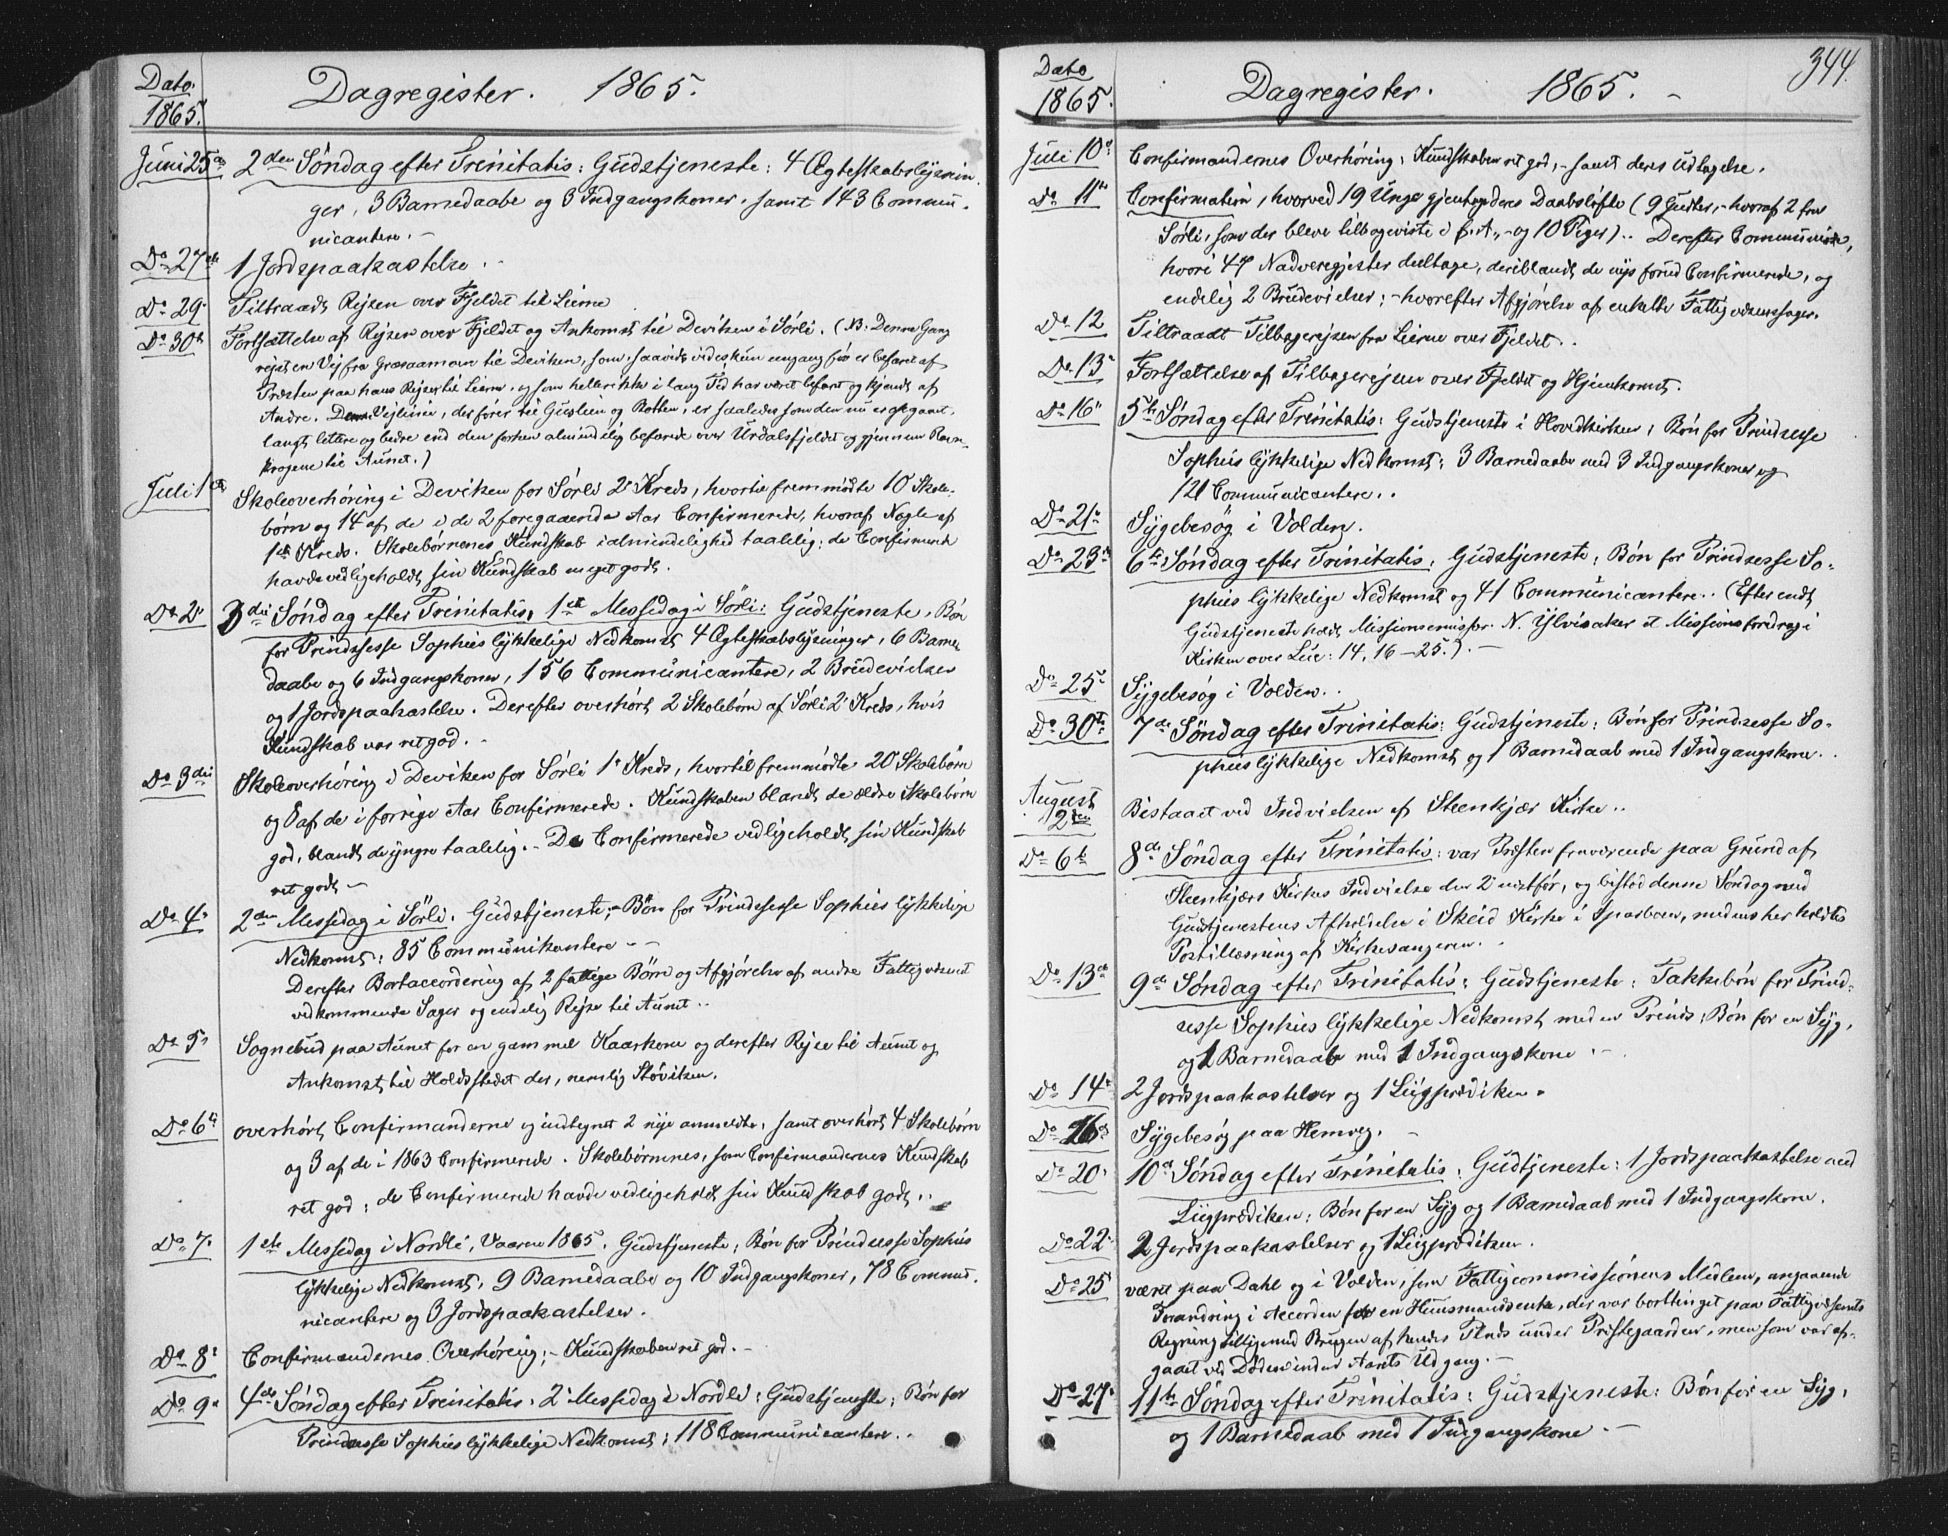 Dato.
1865.
Dagregister. 1865.
Juni 25de 2den Søndag efter Trinitatis: Gudstjeneste: 4 Ægteskabslysnin
ger, 3 Barnedaabe og 3 Indgangskoner, samt 143 Commu-
nicantere. -
Do 27de 1 Jordspaakastelse.
Do 29. Tiltraadt Rejsen over Fjeldet til Lierne
Do 30te Fortsættelse af Rejsen over Fjeldet og Ankomst til Deviken i Sørli. (NB: Denne Gang
rejst en Vej fra Græsaamoen til Deviken, som, saavidt vides kun engang før er befaret af
Præsten paa hans Rejser til Lierne, og som heller ikke i lang Tid har været befaret og kjendt af
Andre. Vejlinien, der fører til Gusten og Botten, er saaledes som den nu er opgaaet,
langt lettere og bedre end den forhen almindelig befarede over Urdalsfjeldet og gjennem Ravn-
krogene til Aunet.)
Juli 1ste Skoleoverhøring i Deviken for Sørli 2. Kreds, hvortil fremmødte 10 Skole-
børn og 14 af de i de 2 foregaaende Aar Confirmerede, hvoraf Nogle af
1ste Kreds. Skolebørnenes Kundskab i almindelighed taalelig; de Confirmerede
havde vedligeholdt sin Kundskab meget godt.
Do 2. 3die Søndag efter Trinitatis, 1ste Messedag i Sørli: Gudstjeneste, Bøn
for Prindsesse Sophies lykkelige Nedkomst, 4 Ægteskabslysninger, 6 Barne
daabe og 6 Indgangskoner, 156 Communicantere, 2 Brudevielser
og 1 Jordspaakastelse. Derefter overhørt 2 Skolebørn af Sørli 2. Kreds, hvis
Kundskab var ret god. -
Do 3die Skoleoverhøring i Deviken for Sørli 1. Kreds, hvortil fremmødte 20 Skolebørn
og 8 af de i forrige Aar Confirmerede. Kundskaben blandt de ældre Skolebørn
god, blandt de yngre taalelig. - De Confirmerede vedligeholdt sin Kundskab
ret godt -
Do 4. 2den Messedag i Sørli. Gudstjeneste; - Bøn for Prindsesse Sophies lykkelige
Nedkomst; 85 Communikantere - -
Derefter Bortaccordering af 2 fattige Børn og Afgjørelse af andre Fattigvæsenet
vedkommende Sager og endelig Rejse til Aunet..
Do 5. Sognebud paa Aunet for en gammel Kaarkone og derefter Rejse til Aunet og
Ankomst til Holdstedet der, nemlig Støviken.
Do 6te overhørt Confirmanderne og indtegnet 2 nye anmeldte, samt overhørt 4 Skolebørn
og 3 af de i 1863 Confirmerede. Skolebørnenes, som Confirmandernes Kundskab
ret god; de Confirmerede havde vedligeholdt sin Kundskab godt..
Do 7. 1ste Messedag i Nordli, Vaaren 1865. Gudstjeneste; Bøn for Prindsesse Sophies
lykkelige Nedkomst, 9 Barnedaabe og 10 Indgangskoner, 78 Commu-
nicantere og 3 Jordspaakastelser.
Do 8. Confirmandernes Overhøring; - Kundskaben ret god. -
Do 9. 4de Søndag efter Trinitatis. 2. Messedag i Nordli: Gudstjeneste; Bøn for
Prindsesse Sophies lykkelige Nedkomst; 118 Communicantere..
344.
Dato
1865.
Dagregister. 1865. -
Juli 10de Confirmandernes Overhøring; Kundskaben ret god, - samt deres Udtagelse.
Do 11te Confirmation, hvorved 19 Unge gjentog deres Daabsløfte (9 Gutter, - hvoraf 2 fra
Sørli, som der bleve tilbageviste i f.A., - og 10 Piger).. Derefter Communion,
hvori 47 Nadveregjester deeltoge, deriblandt de nys forud Confirmerede, og
endelig 2 Brudevielser; - hvorefter Afgjørelse af enkelte Fattigvæsenssager.
Do 12 Tiltraadt Tilbagerejsen fra Lierne over Fjeldet..
Do 13. Fortsættelse af Tilbagerejsen over Fjeldet og Hjemkomst.
Do 16. 5te Søndag efter Trinitatis: Gudstjeneste i Hovedkirken; Bøn for Prindsesse
Sophies lykkelige Nedkomst; 3 Barnedaabe med 3 Indgangskoner og
121 Communicantere..
Do 21de Sygebesøg i Volden.
Do 23de 6te Søndag efter Trinitatis: Gudstjeneste; Bøn for Prindsesse So-
phies lykkelige Nedkomst og 41 Communicantere.. (Efter endt
Gudstjeneste holdt Missionsemissær N. Ylvisaker et Missionsforedrag i
Kirken over Luc: 14, 16-25.). -
Do 25. Sygebesøg i Volden..
Do 30te 7de Søndag efter Trinitatis: Gudstjeneste; Bøn for Prindsesse So-
phies lykkelige Nedkomst og 1 Barnedaab med 1 Indgangskone.
August
2den Bistaaet ved Indvielsen af Steenkjær Kirke..
Do 6te 8de Søndag efter Trinitatis: var Præsten fraværende paa Grund af
Steenkjærs Kirkes Indvielse den 2. næstfør, og bistod denne Søndag med
Gudstjenestens Afholdelse i Skeid Kirke i Sparboen, medens her holdtes
Postillæsning af Kirkesangeren..
Do 13de 9de Søndag efter Trinitatis: Gudstjeneste: Takkebøn for Prind-
sesse Sophies lykkelige Nedkomst med en Prinds; Bøn for en Syg,
og 1 Barnedaab med 1 Indgangskone. -
Do 14. 2 Jordspaakastelser og 1 Liigprædiken.
Do 16de Sygebesøg paa Hemveg. -
Do 20. 10de Søndag efter Trinitatis: Gudtjeneste: 1 Jordspaakastelse med
Liigprædiken; Bøn for en Syg og 1 Barnedaab med 1 Indgangskone.
Do 22. 2 Jordspaakastelser og 1 Liigprædiken.
Do 25 været paa Dahl og i Volden, som Fattigcommissionens Medlem, angaaende
Forandring i Accorden for en Huusmandsenke, der var bortinget paa Fattigvæsenets
Regning tilligemed Brugen af hendes Plads under Præstegaarden, men som var af-
gaaet ved Døden inden Aarets Udgang. -
Do 27. 11te Søndag efter Trinitatis: Gudstjeneste: Bøn for en Syg,
og 1 Barnedaab med 1 Indgangskone. -